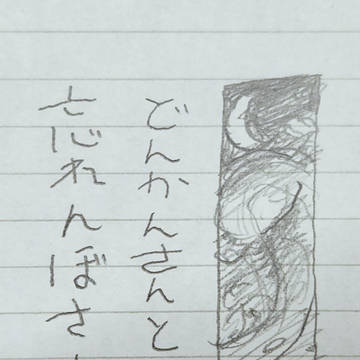 どんかんさんと
忘れんぼさ